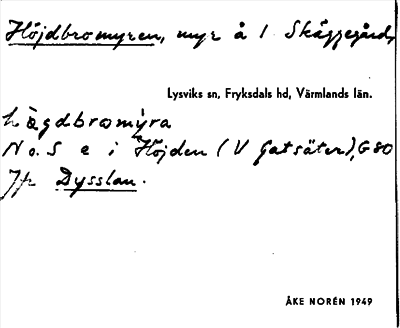 Höjdbromyren, myr å 1 Skäggegård,
Lysviks sn, Fryksdals hd, Värmlands län.
hàgdbromýra
N o. S e i Höjden (V Gatsäter), G 80
Jfr Dysslan.
ÅKE NORÉN 1949